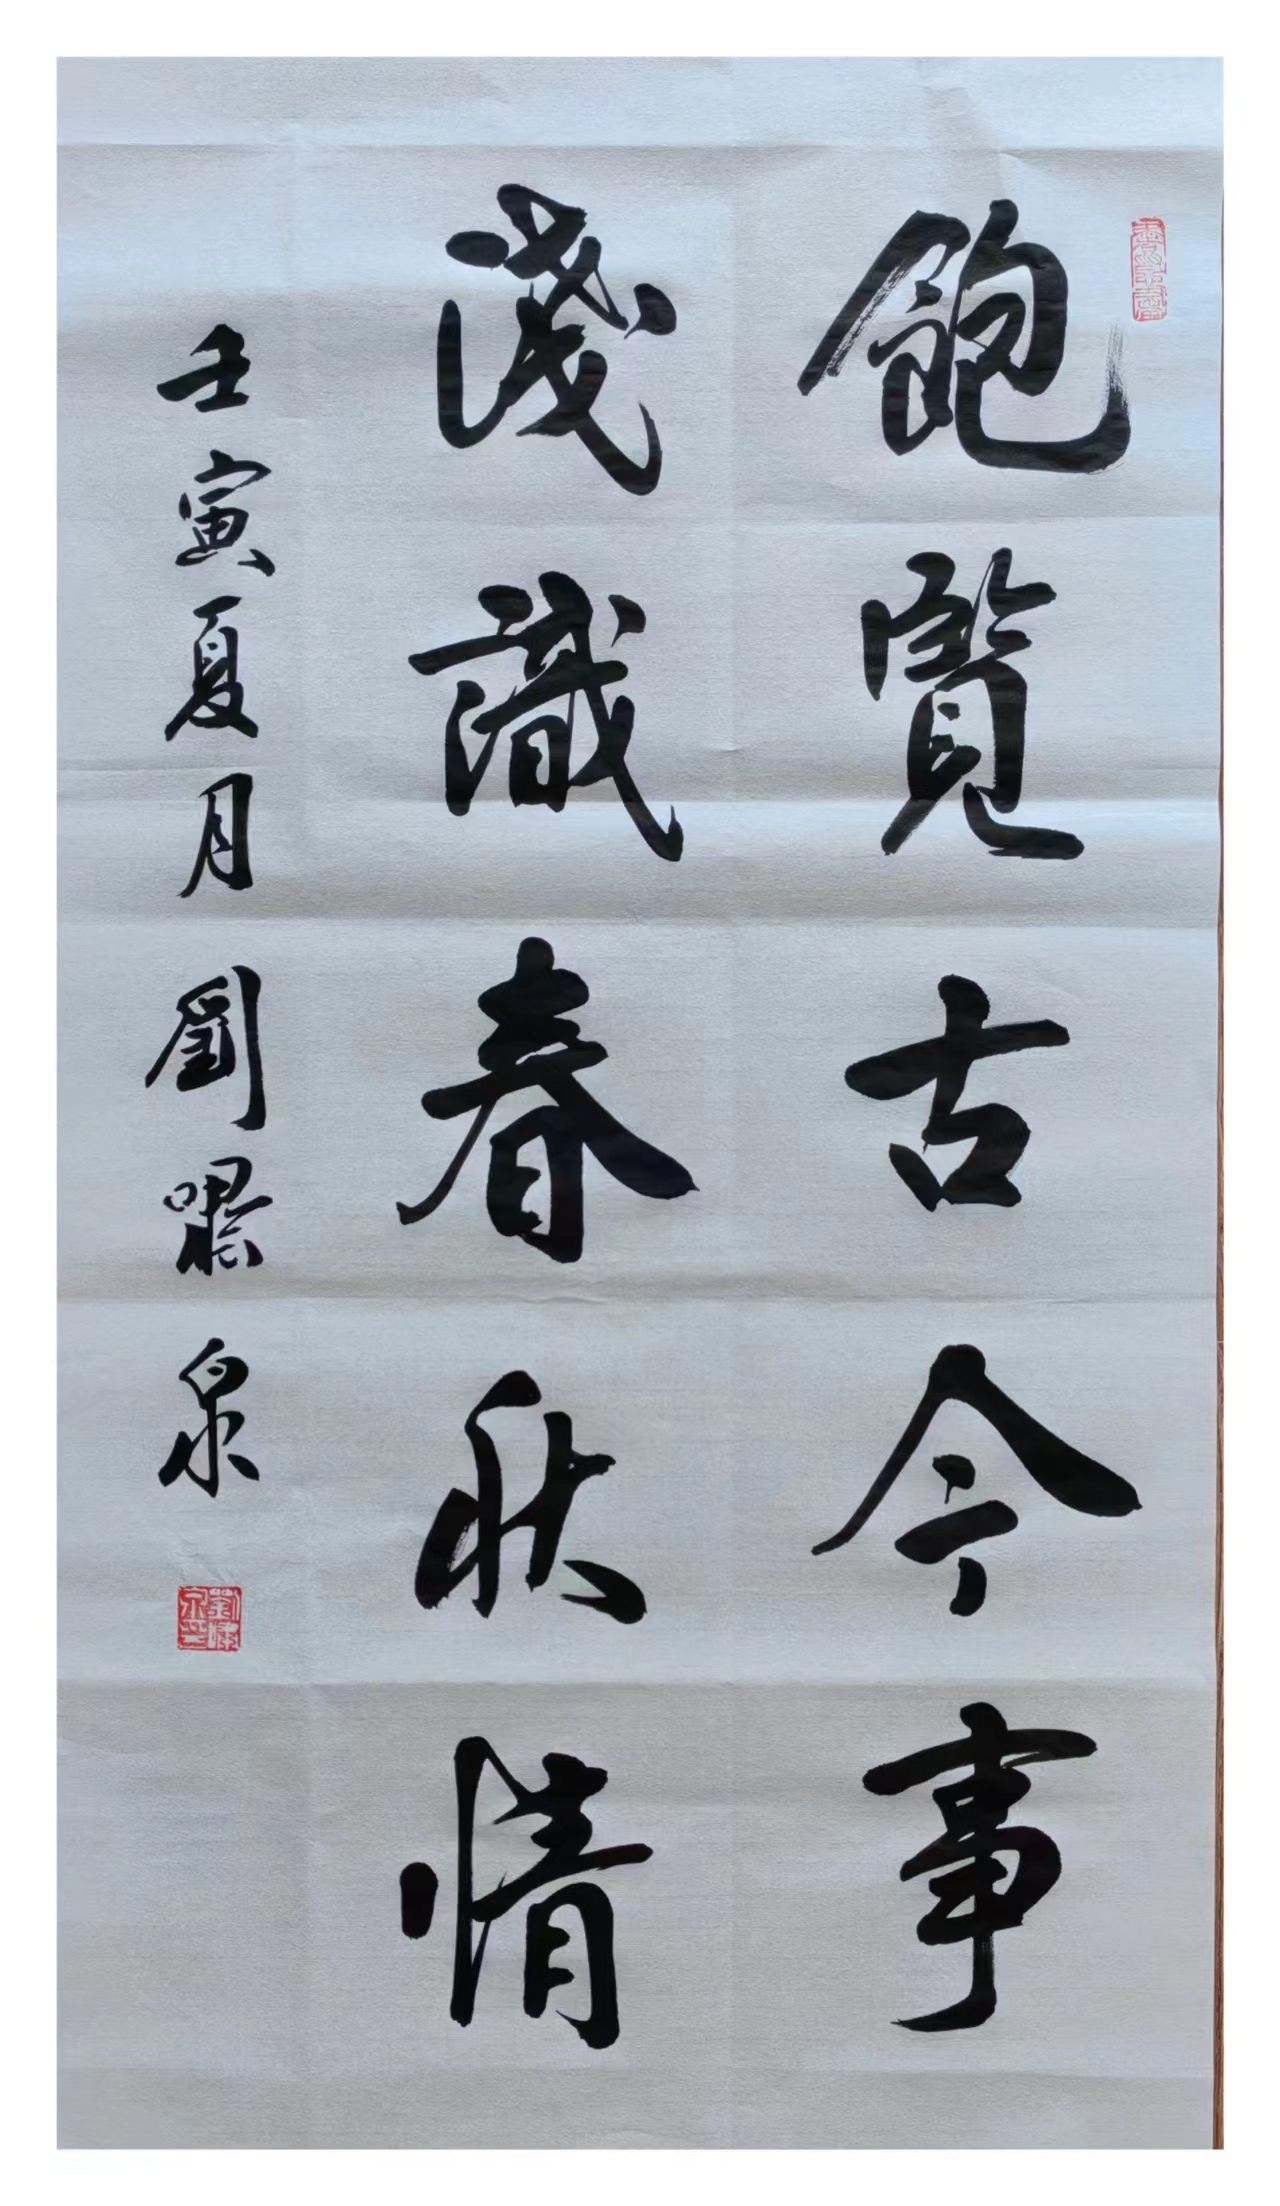 飽覽古今事
淺識春秋情
壬寅夏月劉曝泉